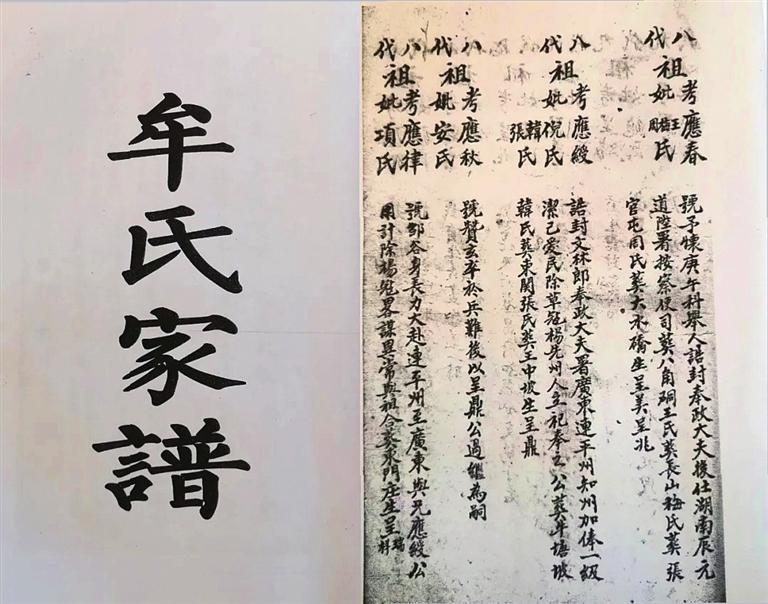 牟氏家譜
八代祖考應春
妣王梅周氏
號予懷庚午科舉人誥封奉政大夫後仕湖南辰元
道陞署按察使司葬八角硐王氏葬長山梅氏葬張
官屯周氏葬大水橋生呈美呈兆
八代祖考應綬
妣倪氏韓張氏
誥封文林郎奉政大夫署廣東連平州知州加俸一級
潔己愛民除草冦楊先州人立祀奉之公葬牛塘坡
韓氏葬東関張氏葬王中坡生呈鼎
八代祖考應秋
妣安氏
號贊玄卒於兵難後以呈鼎公過継為嗣
八代祖考應律
妣項氏
號部谷身長力大赴連平州至廣東與兄應綬公
用計除楊冦畧謀異常與祖合葬東門庄生呈瑞科